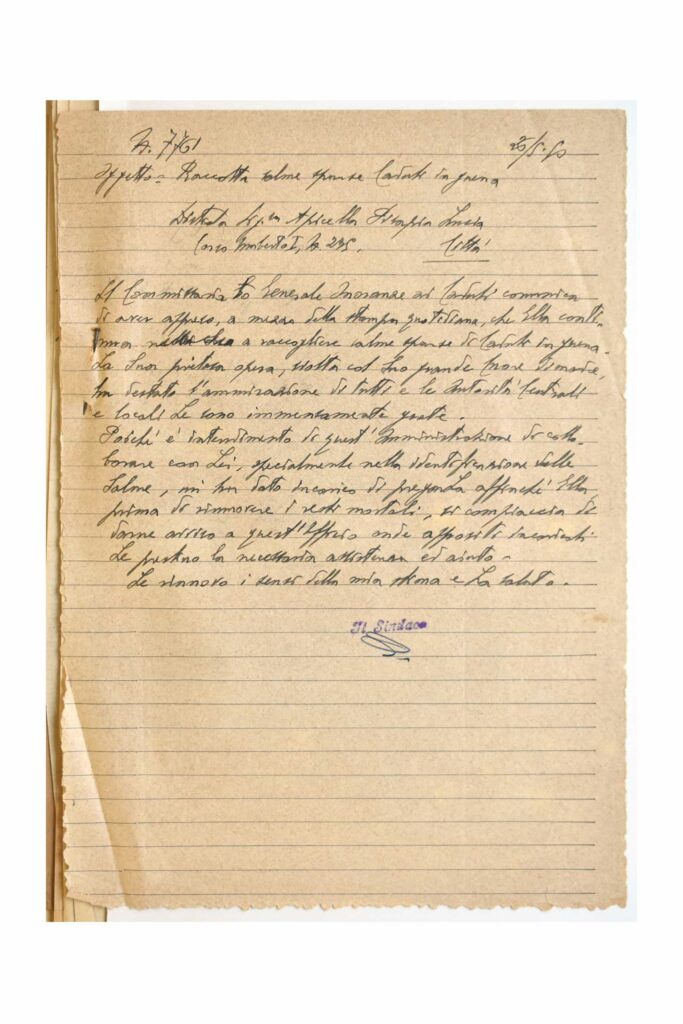 N. 7761 25/5-50
Oggetto = Raccolta salme sparse Caduti in guerra
Distinta Sig.ra Apicella Lucia
Corso Umberto I, N. 245.
Città
Il Commissariato Generale Onoranze ai Caduti comunica
di aver appreso, a mezzo della stampa quotidiana, che Ella conti-
nua a raccogliere salme sparse di Caduti in guerra.
La Sua pietosa opera, svolta col Suo grande Cuore di madre,
ha destato l'ammirazione di tutti e le Autorità Centrali
e locali Le sono immensamente grate.
Poiché è intendimento di quest'Amministrazione di colla-
borare con Lei, specialmente nella identificazione delle
Salme, mi ha dato incarico di pregarLa affinché Ella
prima di rimuovere i resti mortali, si compiaccia di
darne avviso a quest'Ufficio onde appositi incaricati
Le prestino la necessaria assistenza ed aiuto -
Le rinnovo i sensi della mia stima e La saluto.
Il Sindaco